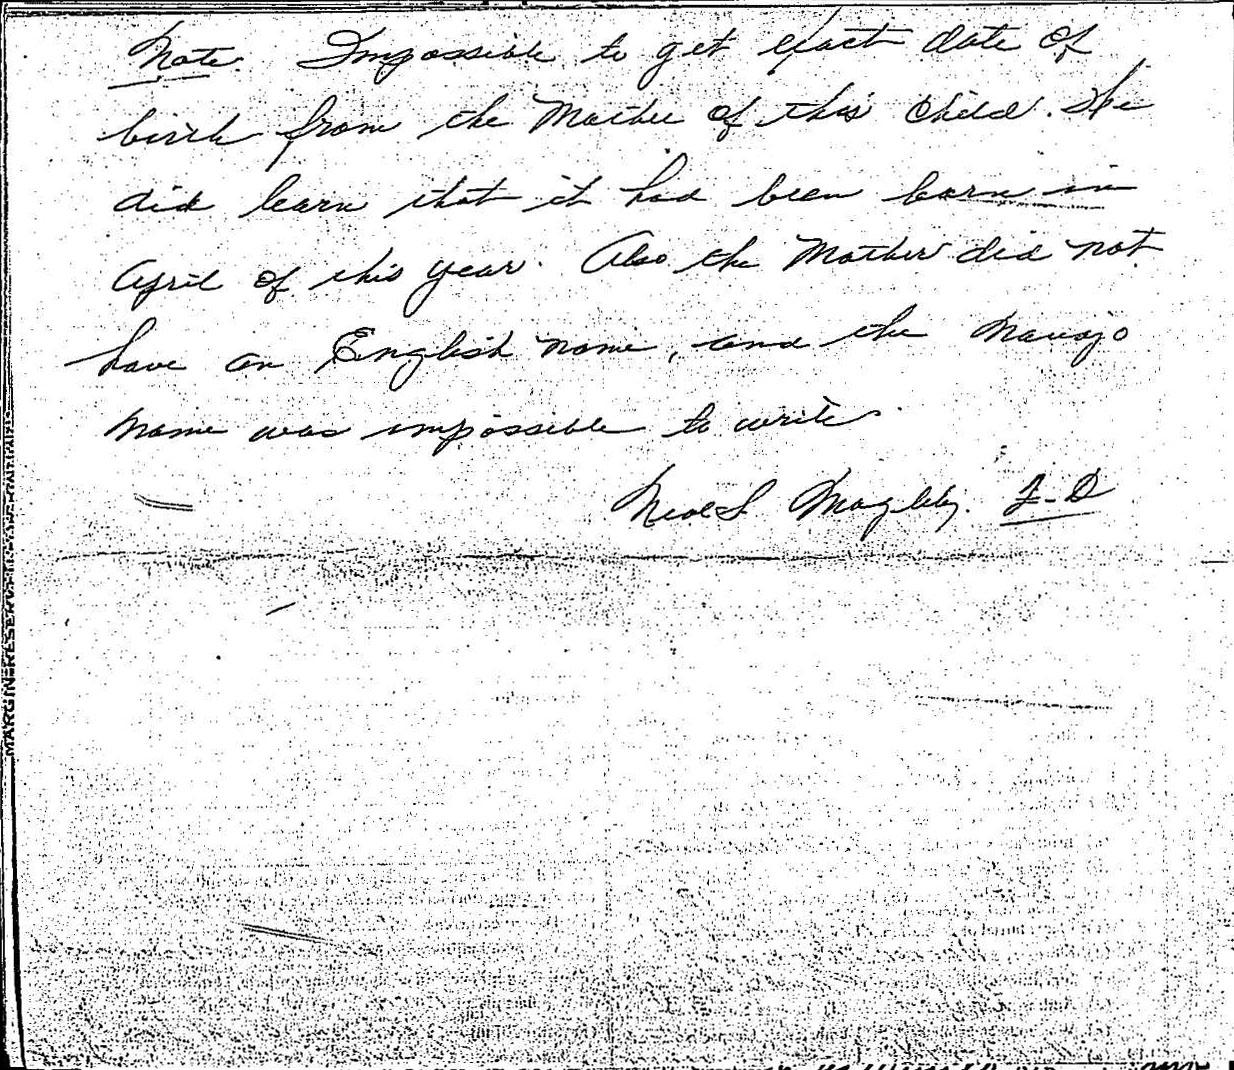 Note. Impossible to get exact date of
birth from the Mother of this child. We
did learn that it had been born in
April of this year. Also the Mother did not
have an English name, and the Navajo
name was impossible to write
Neal S. Magleby. F-D
MARGIN RESERVED